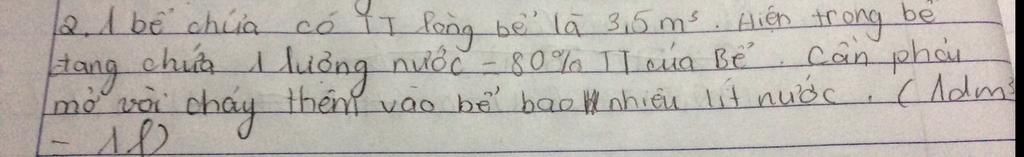 2. 1 bể chứa có TT lòng bể là 3,5 m³. Hiện trong bể
đang chứa 1 lượng nước = 80% TT của Bể. Cần phải
mở vòi chảy thêm vào bể bao nhiêu lít nước. (1dm³
= 1l)